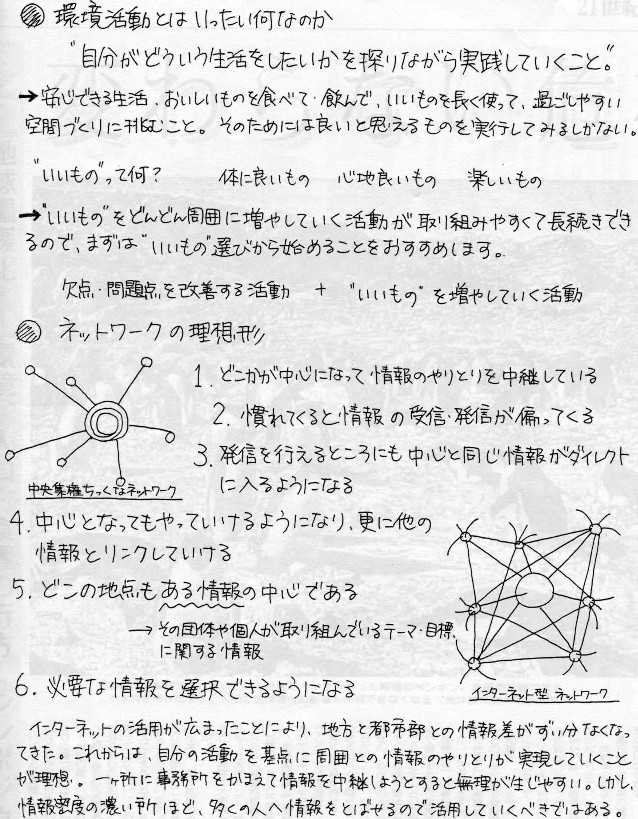 環境活動とはいったい何なのか
"自分がどういう生活をしたいかを探りながら実践していくこと。"
→安心できる生活、おいしいものを食べて・飲んで、いいものを長く使って、過ごしやすい
空間づくりに挑むこと。そのためには良いと思えるものを実行してみるしかない。
"いいもの"って何？ 体に良いもの 心地良いもの 楽しいもの
→"いいもの"をどんどん周囲に増やしていく活動が取り組みやすくて長続きでき
るので、まずは"いいもの"選びから始めることをおすすめします。
欠点・問題点を改善する活動 + "いいもの"を増やしていく活動
ネットワークの理想形
1. どこかが中心になって情報のやりとりを中継している
2. 慣れてくると情報の受信・発信が偏ってくる
3. 発信を行えるところにも中心と同じ情報がダイレクト
に入るようになる
中央集権ちっくなネットワーク
4. 中心となってもやっていけるようになり、更に他の
情報とリンクしていける
5. どこの地点もある情報の中心である
→その団体や個人が取り組んでいるテーマ・目標
に関する情報
6. 必要な情報を選択できるようになる
インターネット型 ネットワーク
インターネットの活用が広まったことにより、地方と都市部との情報差がずい分なくなっ
てきた。これからは、自分の活動を基点に周囲との情報のやりとりが実現していくこと
が理想。一ヶ所に事務所をかまえて情報を中継しようとすると無理が生じやすい。しかし、
情報密度の濃い所ほど、多くの人へ情報をとばせるので活用していくべきではある。